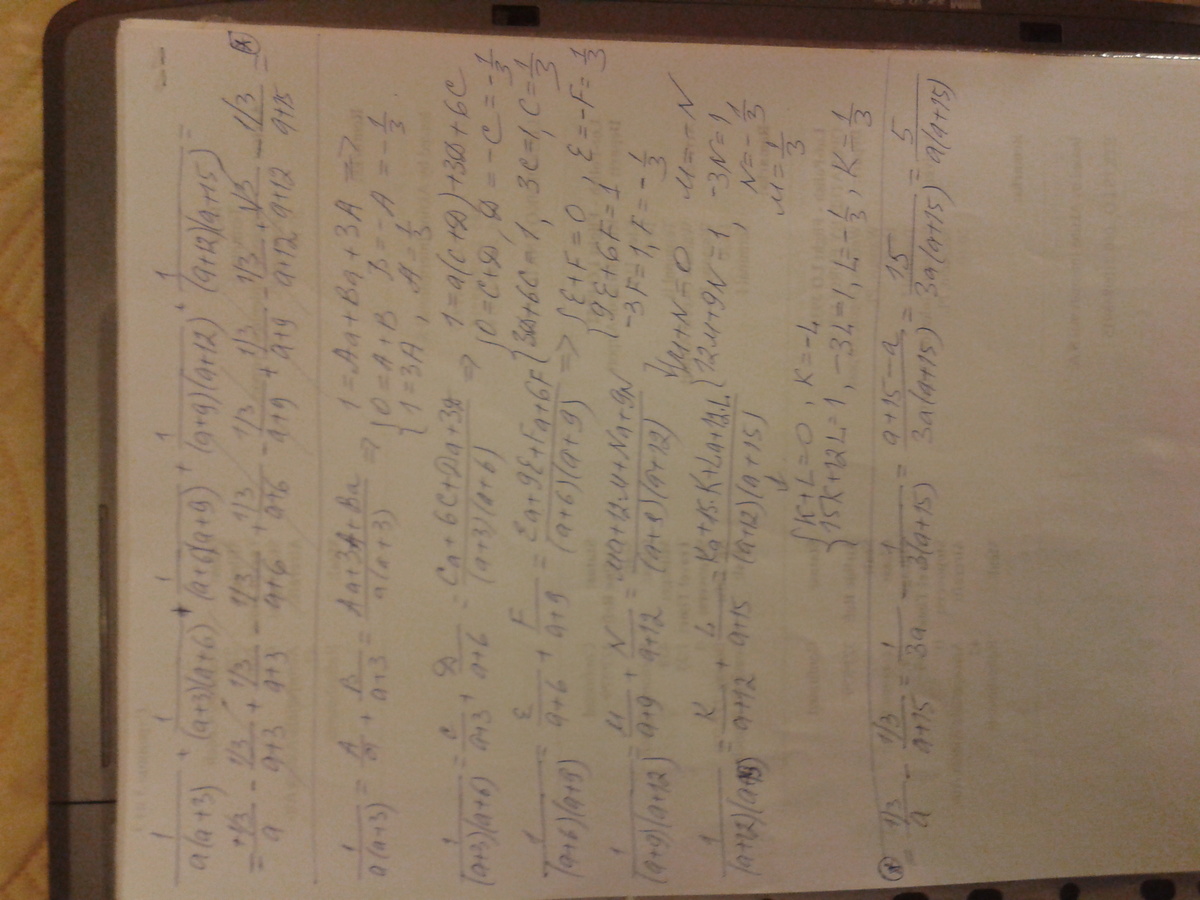 1/(a(a+3)) + 1/((a+3)(a+6)) + 1/((a+6)(a+9)) + 1/((a+9)(a+12)) + 1/((a+12)(a+15)) =
= (1/3)/a - (1/3)/(a+3) + (1/3)/(a+3) - (1/3)/(a+6) + (1/3)/(a+6) - (1/3)/(a+9) + (1/3)/(a+9) - (1/3)/(a+12) + (1/3)/(a+12) - (1/3)/(a+15) = (*)
1/(a(a+3)) = A/a + B/(a+3) = (Aa+3A+Ba)/(a(a+3)) => 1 = Aa+Ba+3A =>
{0 = A+B B = -A = -1/3
{1 = 3A, A = 1/3
1/((a+3)(a+6)) = C/(a+3) + D/(a+6) = (Ca+6C+Da+3D)/((a+3)(a+6)) => 1 = a(C+D)+3D+6C
{0 = C+D, D = -C = -1/3
{3D+6C = 1, 3C = 1, C = 1/3
1/((a+6)(a+9)) = E/(a+6) + F/(a+9) = (Ea+9E+Fa+6F)/((a+6)(a+9)) => {E+F = 0 E = -F = 1/3
{9E+6F = 1
-3F = 1, F = -1/3
1/((a+9)(a+12)) = M/(a+9) + N/(a+12) = (Ma+12M+Na+9N)/((a+9)(a+12))
{M+N = 0 M = -N
{12M+9N = 1, -3N = 1
N = -1/3
M = 1/3
1/((a+12)(a+15)) = K/(a+12) + L/(a+15) = (Ka+15K+La+12L)/((a+12)(a+15))
{K+L = 0, K = -L
{15K+12L = 1, -3L = 1, L = -1/3, K = 1/3
(*) = (1/3)/a - (1/3)/(a+15) = 1/(3a) - 1/(3(a+15)) = (a+15-a)/(3a(a+15)) = 15/(3a(a+15)) = 5/(a(a+15))